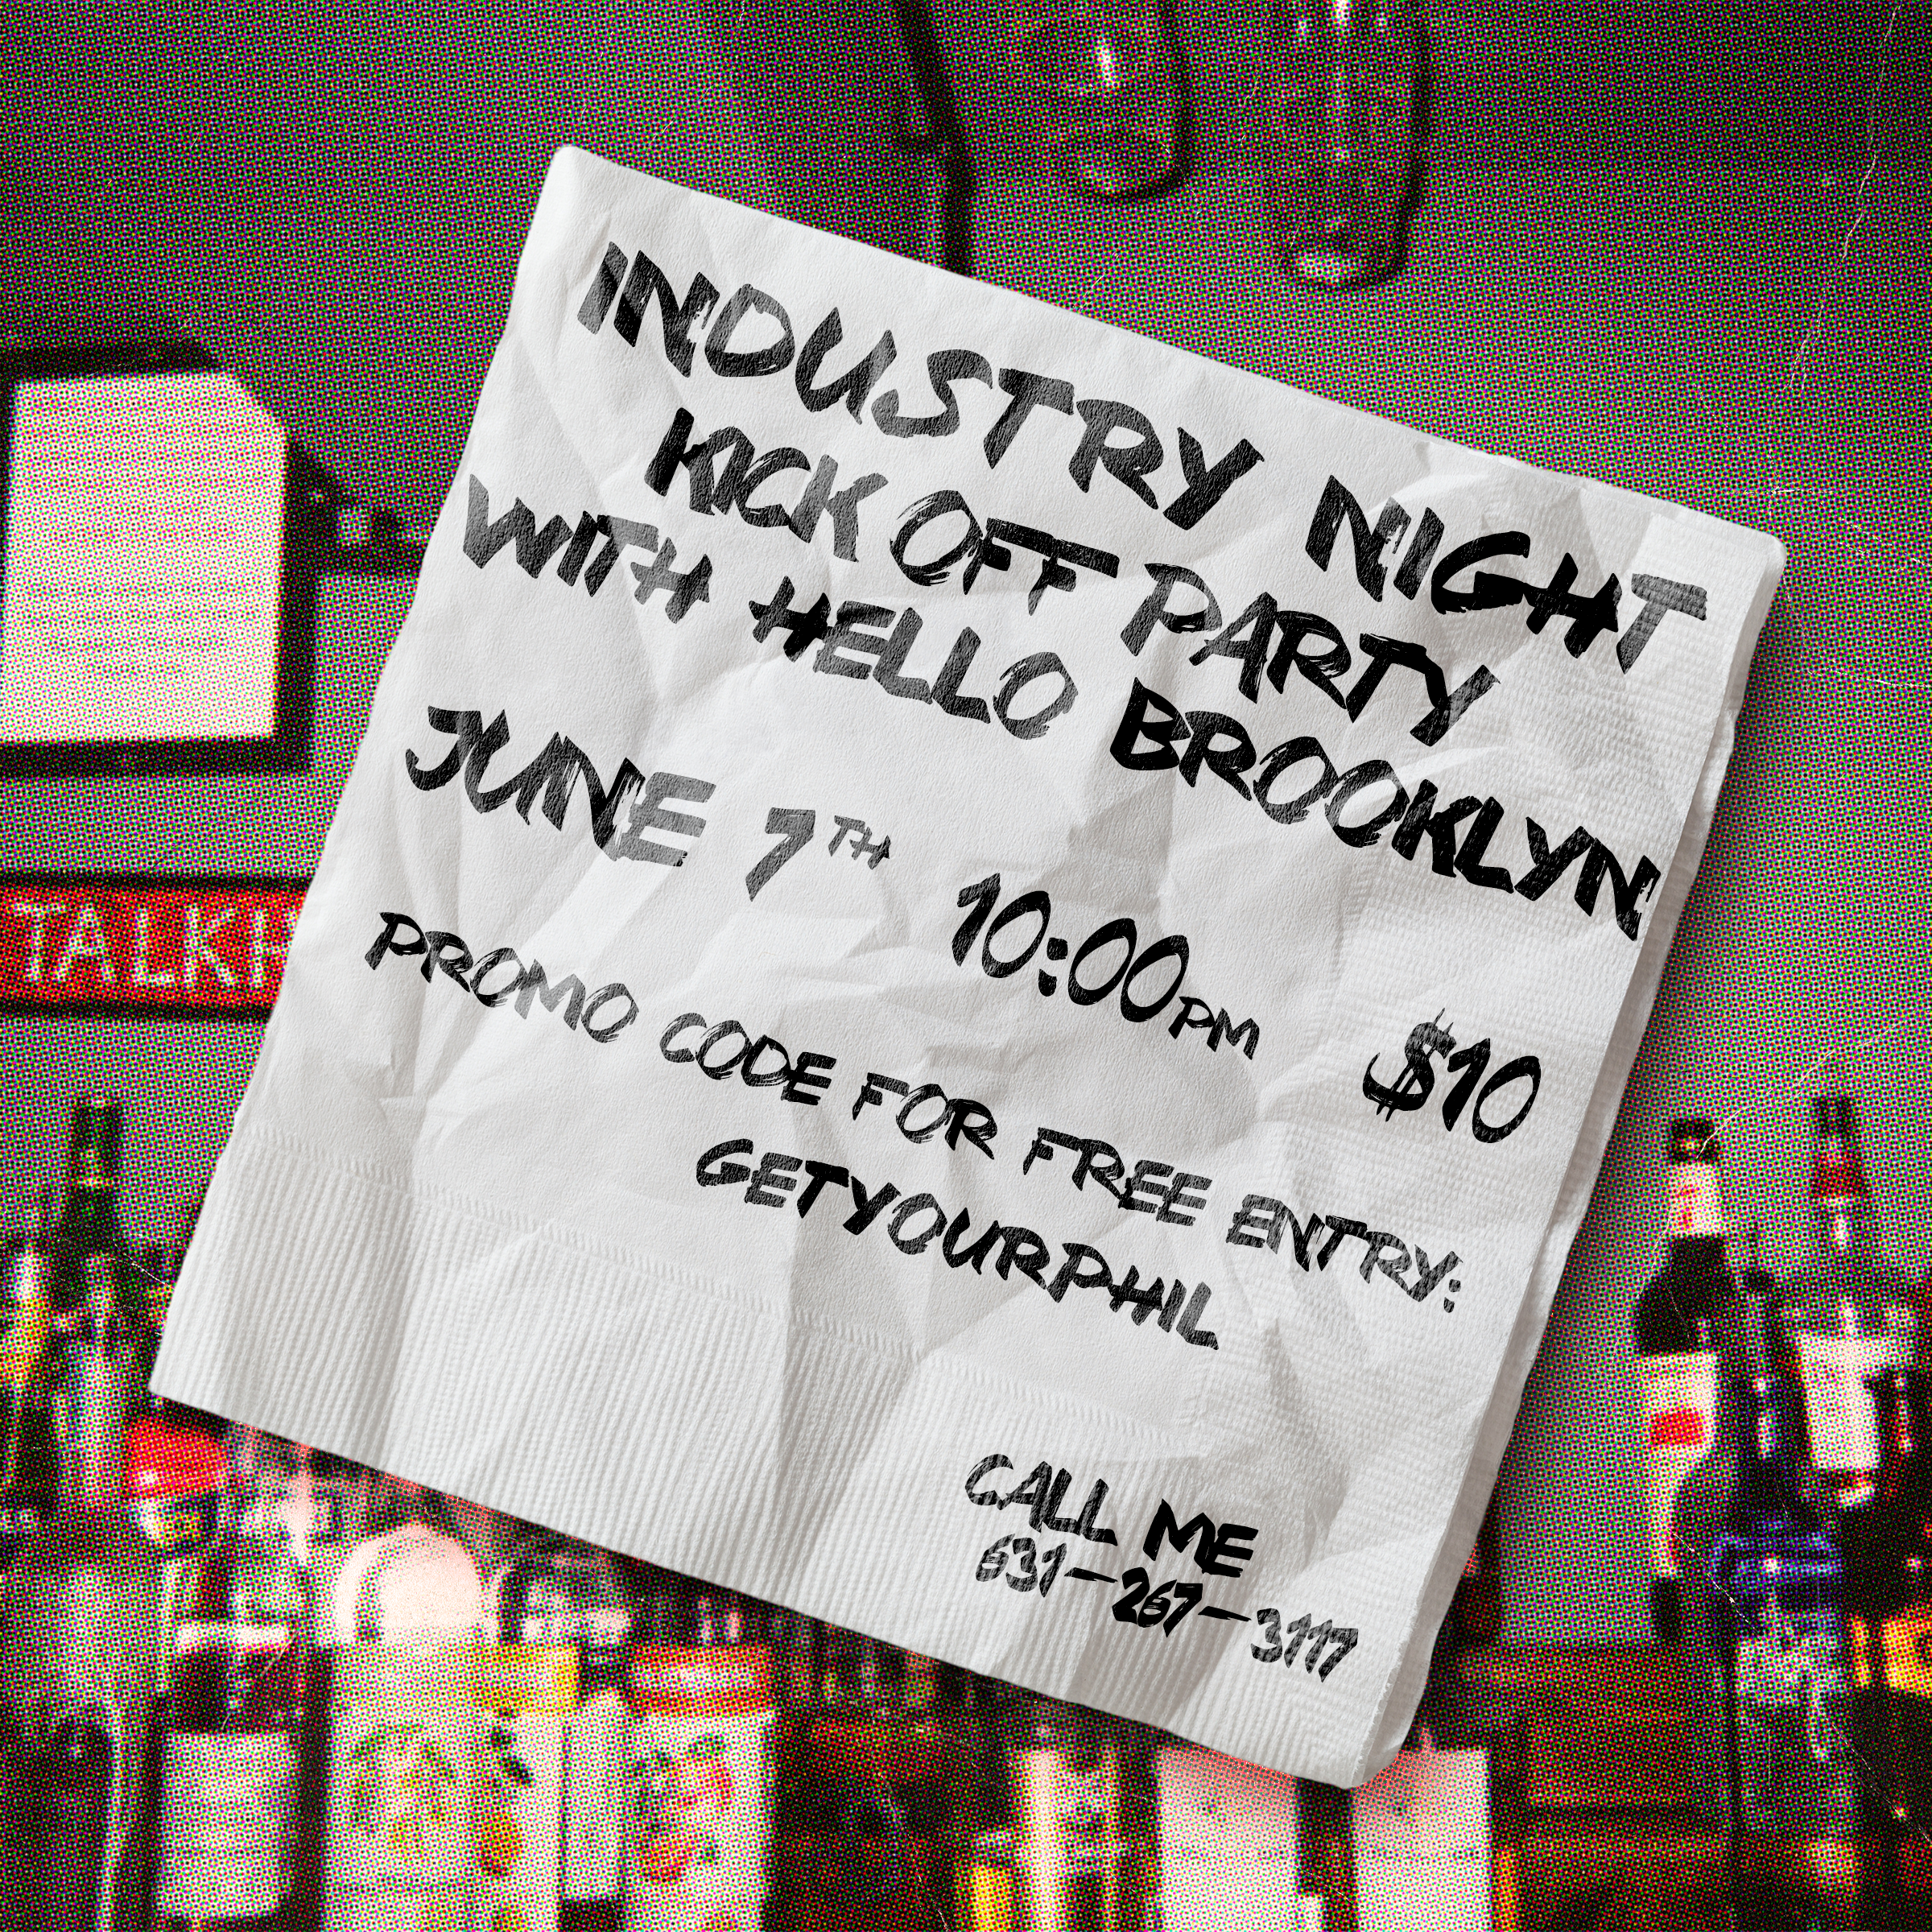 INDUSTRY NIGHT
KICK OFF PARTY
WITH HELLO BROOKLYN
JUNE 7TH 10:00PM $10
PROMO CODE FOR FREE ENTRY:
GETYOURPHIL
CALL ME
631-267-3117
TALKH